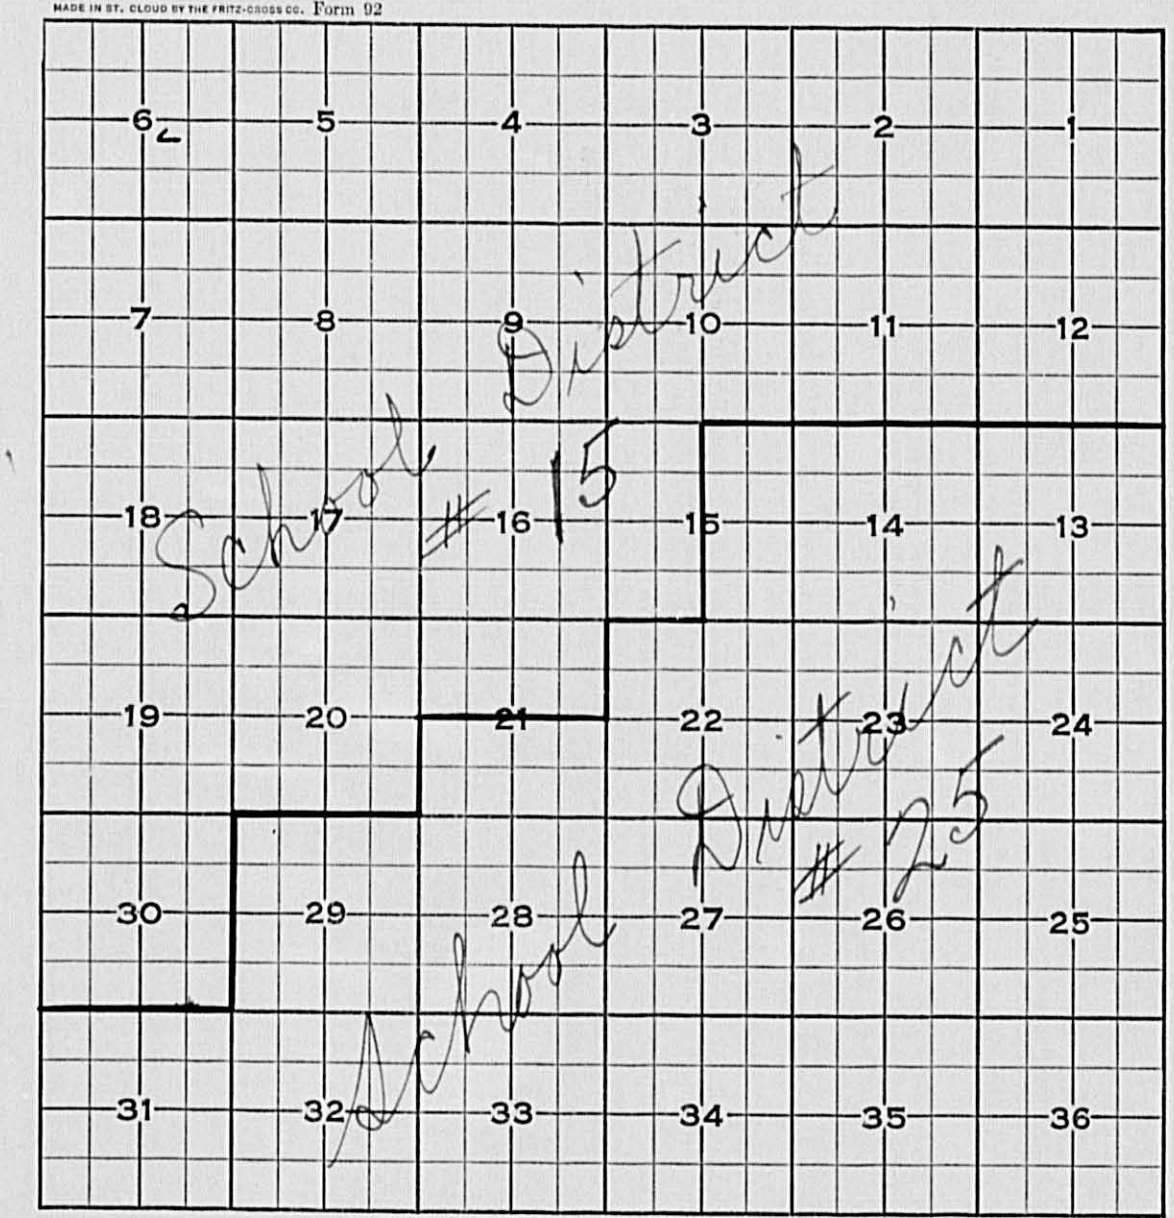 MADE IN ST. CLOUD BY THE FRITZ-CROSS CO. Form 92
6 5 4 3 2 1
7 8 9 10 11 12
18 17 16 15 14 13
19 20 21 22 23 24
30 29 28 27 26 25
31 32 33 34 35 36
School District
# 15
School District
# 25